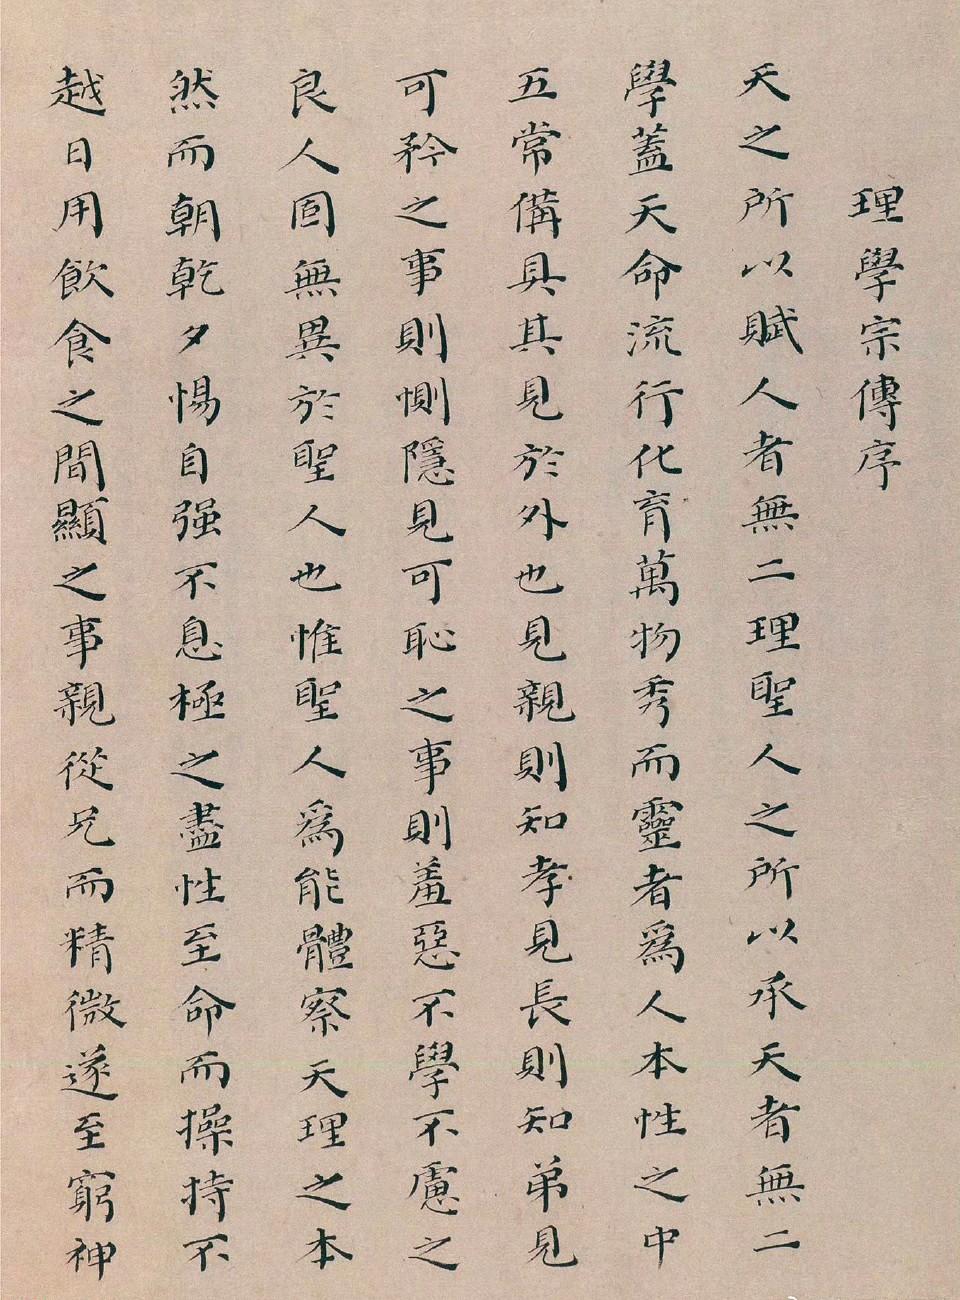 理學宗傳序
天之所以賦人者無二理聖人之所以承天者無二
學蓋天命流行化育萬物秀而靈者爲人本性之中
五常備具其見於外也見親則知孝見長則知弟見
可矜之事則惻隱見可恥之事則羞惡不學不慮之
良人固無異於聖人也惟聖人爲能體察天理之本
然而朝乾夕惕自强不息極之盡性至命而操持不
越日用飲食之間顯之事親從兄而精微遂至窮神